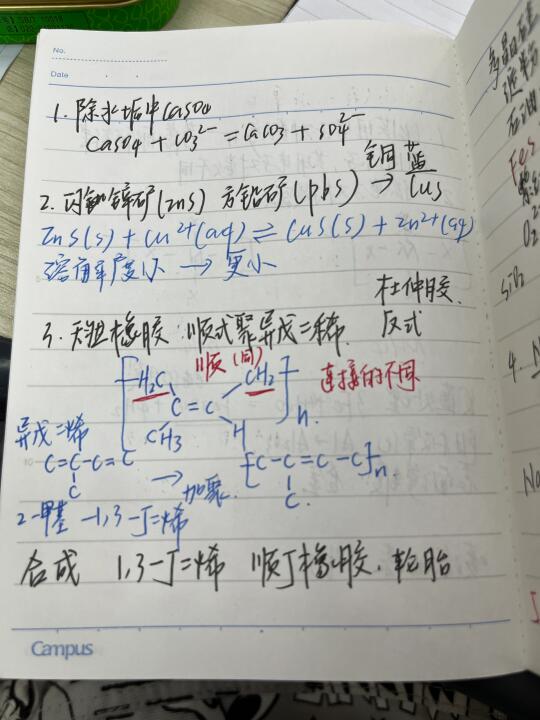 No.
Date
1. 除水垢中CaSO4
CaSO4 + CO3²⁻ = CaCO3 + SO4²⁻
铜蓝
2. 闪锌矿(ZnS) 方铅矿(PbS) → CuS
ZnS(s) + Cu²⁺(aq) ⇌ CuS(s) + Zn²⁺(aq)
溶解度小 → 更小
杜仲胶.
3. 天然橡胶 顺式聚异戊二烯. 反式
顺(同)
H2C CH2 连接的不同
C = C n.
CH3 H
异戊二烯
C=C-C=C [C-C=C-C]n
C → 加聚. C.
2-甲基-1,3-丁二烯
合成 1,3-丁二烯 顺丁橡胶. 轮胎
Campus
FeS
O2
SiO2
4.